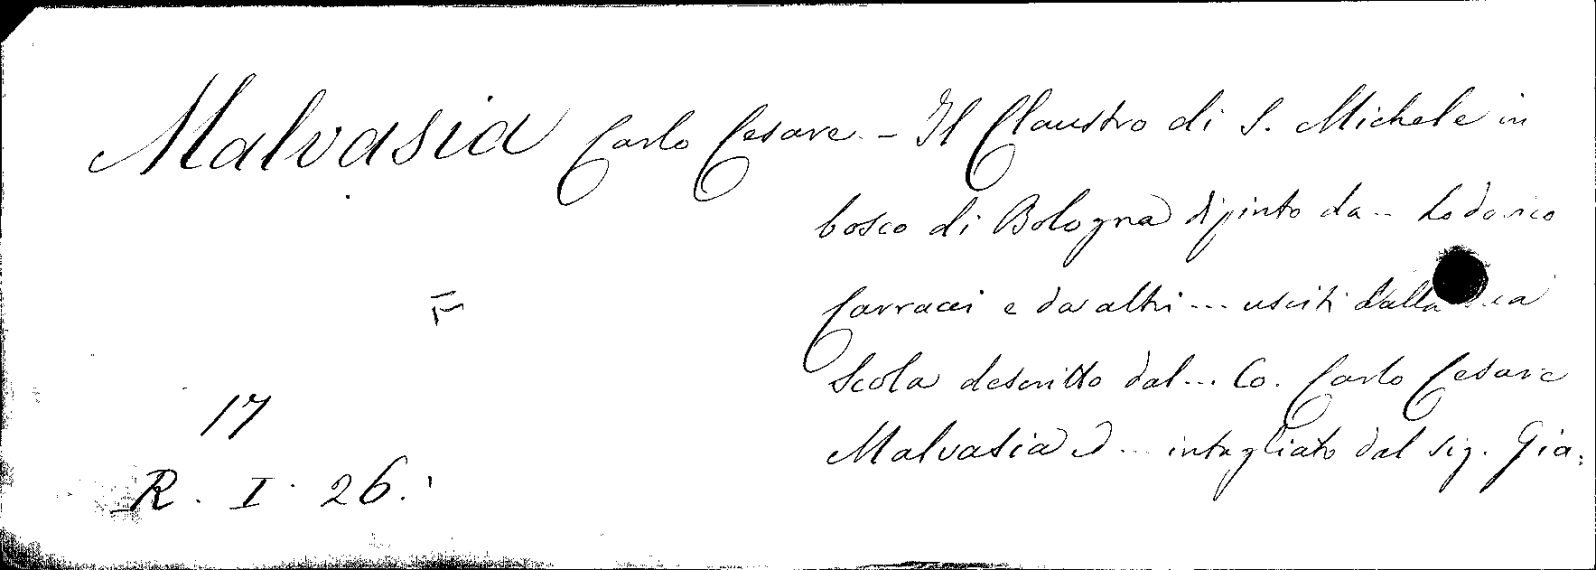 Malvasia Carlo Cesare - Il Claustro di S. Michele in
bosco di Bologna dipinto da... Lodovico
Carracci e da altri ... usciti dalla sua
Scola descritto dal... Co. Carlo Cesare
Malvasia ed ... intagliato dal sig. Gia:
17
R. I. 26.